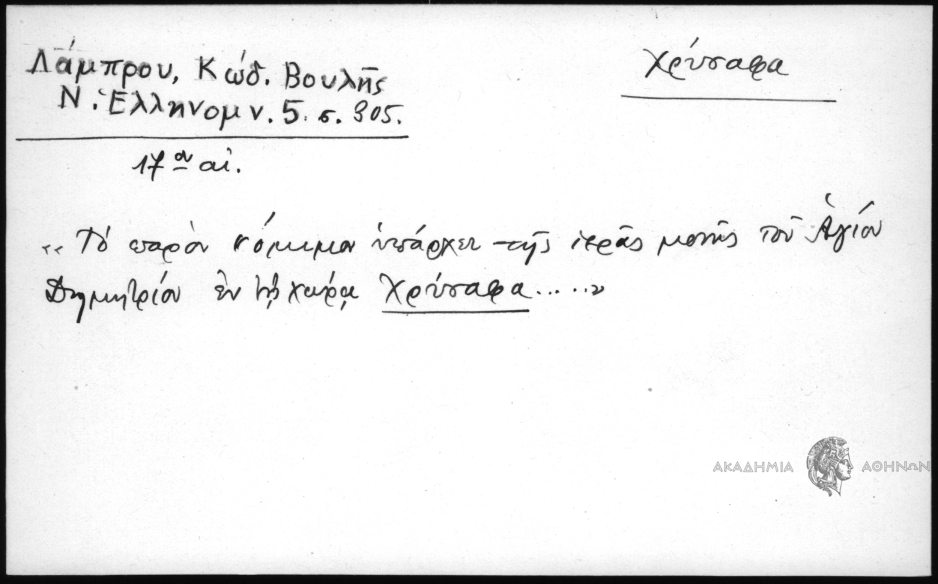 Λάμπρου, Κώδ. Βουλῆς
Χρύσαφα
Ν. Ἑλληνομν. 5. σ. 305.
17ου αἰ.
“Τό παρὸν νόμιμον ὑπάρχει τῆς ἱερᾶς μονῆς τοῦ Ἁγίου
Δημητρίου ἐν τῇ χώρᾳ Χρύσαφα.....”
ΑΚΑΔΗΜΙΑ ΑΘΗΝΩΝ